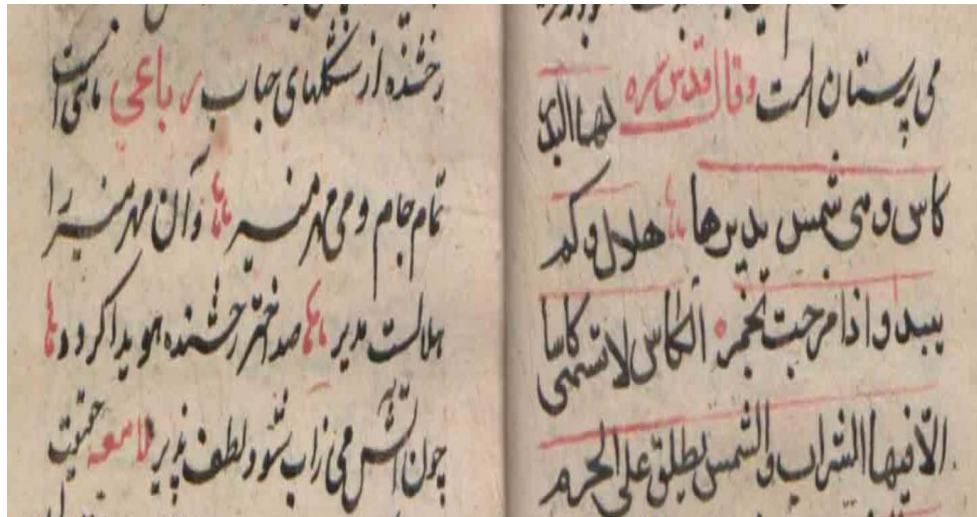 می پرستان است وقال قدس سره لها البدر
كاس وهی شمس یدیرها هلال وکم
یبدو اذا مزجت نجم الکاس لا تسمی کاسا
الا فیها الشراب والشمس یطلق علی الجرم
رخشنده از شکلهای حباب رباعی ماهیست
تمام جام و می مهر منیر وان مهر منیر را
هلالست مدیر صد اختر رخشنده هویدا کردد
چون آتش می زاب شود لطف پذیر لامعه حقیقت